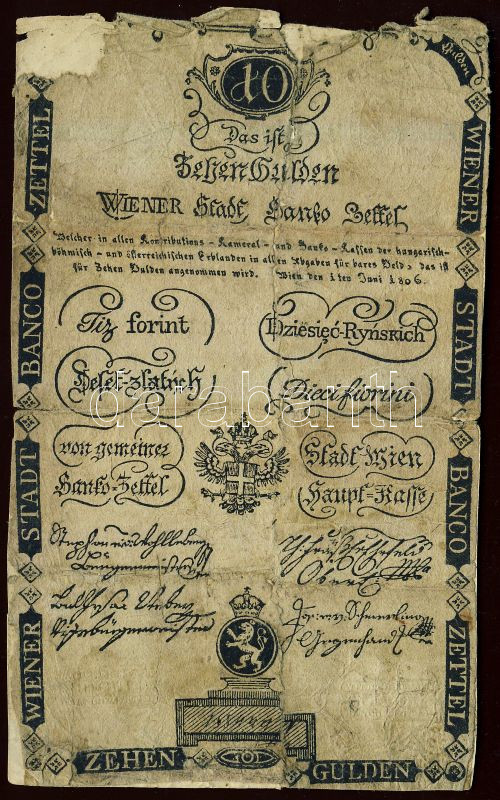 Gulden
10
Das ist
Zehen Gulden
WIENER Stadt Banko Zettel
Welcher in allen Kontributions-Kameral-und Banko-Kassen der hungarisch-
böhmisch-und österreichischen Erblanden in allen Abgaben für bares Geld, das ist
für Zehen Gulden angenommen wird. Wien den 1ten Juni 1806.
Tiz forint
Dziesięć-Ryńskich
Deset-zlatých
Dieci fiorini
von gemeiner
Banko-Zettel
Stadt Wien
Haupt-Kasse
darabanth
WIENER
STADT
BANCO
ZETTEL
WIENER
STADT
BANCO
ZETTEL
ZEHEN
10
GULDEN